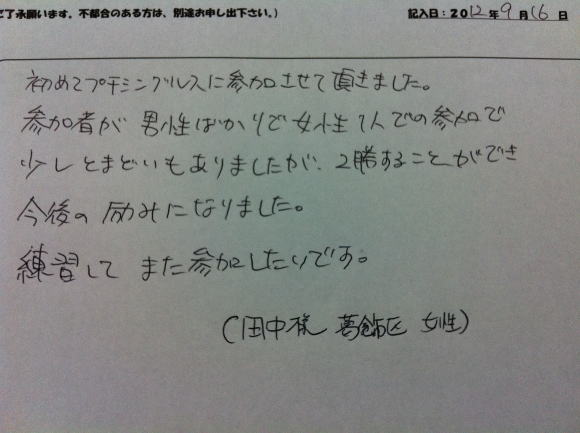 ご了承願います。不都合のある方は、別途お申し出下さい。)
記入日：2012年9月16日
初めてプチミングルスに参加させて頂きました。
参加者が男性ばかりで女性1人での参加で
少しとまどいもありましたが、2勝することができ
今後の励みになりました。
練習してまた参加したいです。
(田中様 葛飾区 女性)